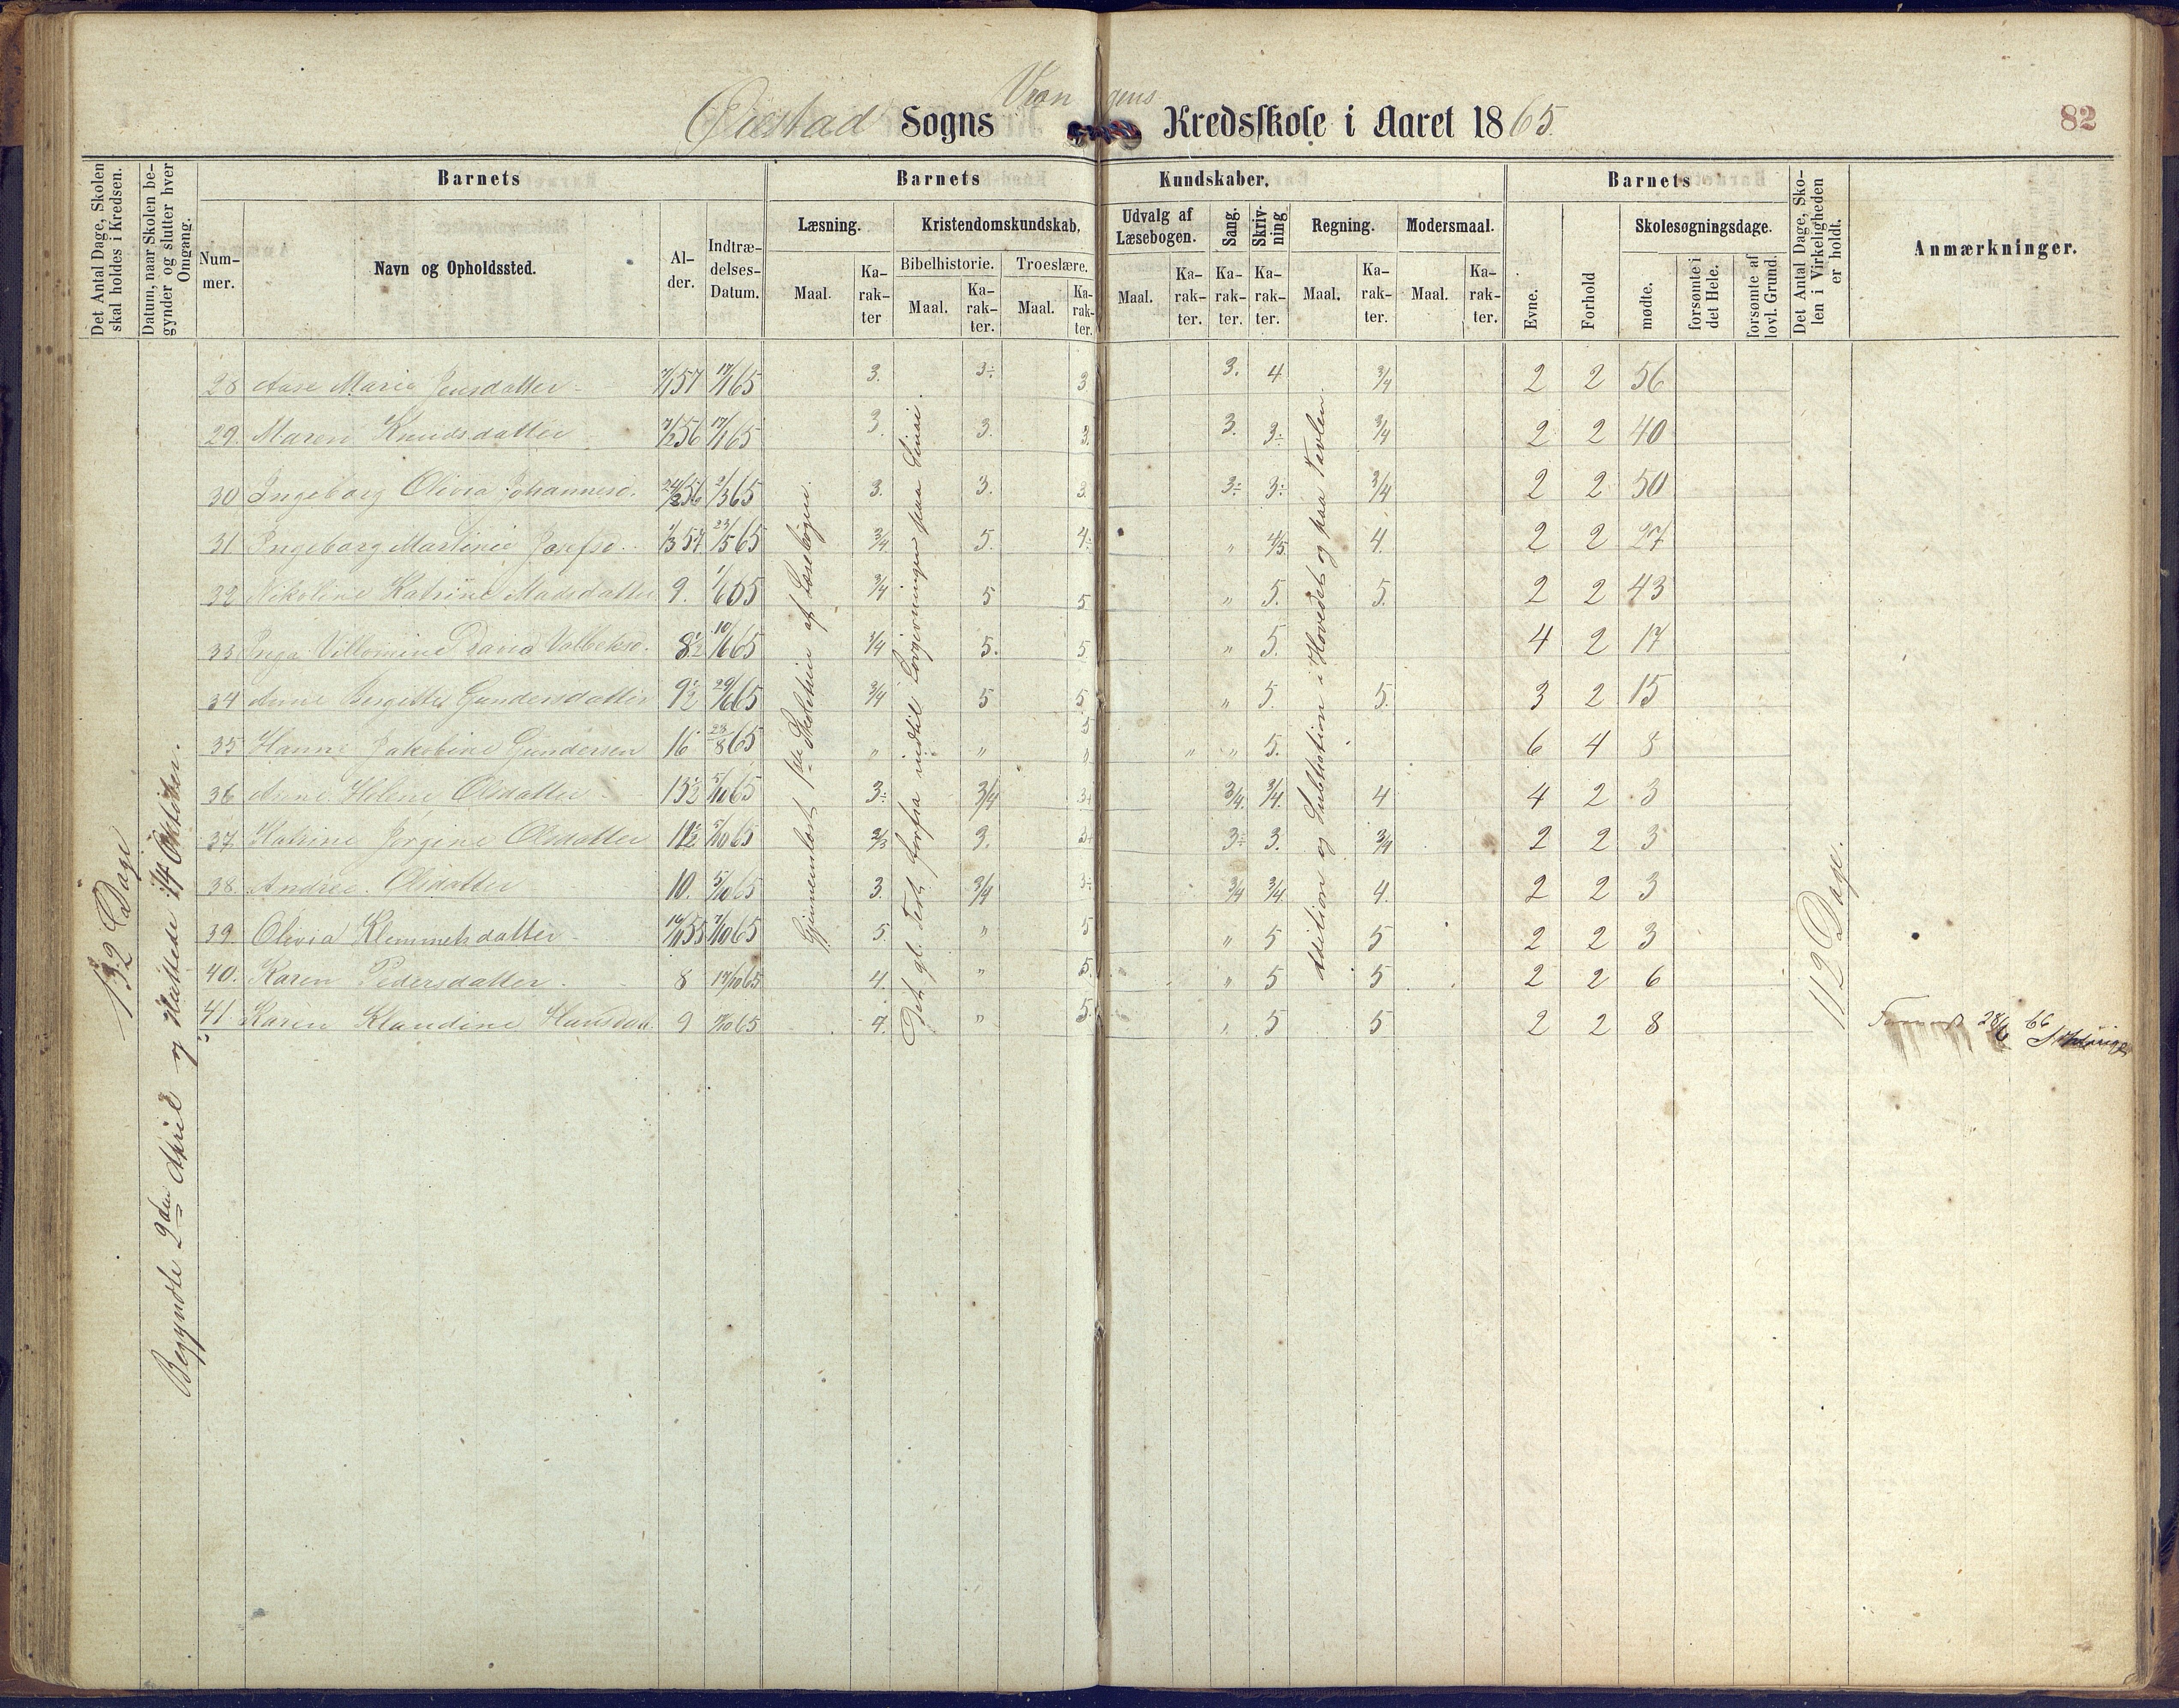 Vrængens
Øiestad Sogns Kredsskole i Aaret 1865.
82
Det Antal Dage, Skolen skal holdes i Kredsen.
Datum, naar Skolen begynder og slutter hver Omgang.
Barnets
Barnets Kundskaber.
Barnets
Det Antal Dage, Skolen i Virkeligheden er holdt.
Anmærkninger.
Nummer.
Navn og Opholdssted.
Alder.
Indtrædelses-Datum.
Læsning.
Kristendomskundskab.
Udvalg af Læsebogen.
Sang.
Skrivning.
Regning.
Modersmaal.
Evne.
Forhold
Skolesøgningsdage.
Bibelhistorie.
Troeslære.
Maal.
Karakter
Maal.
Karakter.
Maal.
Karakter.
Maal.
Karakter.
Karakter.
Karakter.
Maal.
Karakter.
Maal.
Karakter.
mødte.
forsømte i det Hele.
forsømte af lovl. Grund.
132 Dage
Begyndte 2den April og sluttede 14 Oktober.
Gjennemlæst 1ste Skoletrin af Læsebogen.
Det gl. Test. forfra indtil Lovgivningen paa Sinai.
Addition og Subtraktion i Hovedet og paa Tavlen
112 Dage.
28 Aase Maria Jensdatter 7/1 57 17/1 65 3. 3÷ 3 3. 4 3/4 2 2 56
29. Maren Knudsdatter 7/2 56 17/1 65 3. 3. 3. 3. 3÷ 3/4 2 2 40
30 Ingeborg Olivia Johannesd. 24/2 56 2/3 65 3. 3. 3. 3÷ 3÷ 3/4 2 2 50
31 Ingeborg Martinie Josefsd. 1/3 57 23/5 65 3/4 5. 4÷ " 4/5 4. 2 2 27
32 Nikoline Katrine Madsdatter 9. 1/6 65 3/4 5 5 " 5. 5. 2 2 43
33 Inga Villomine David Valbeksd. 8½ 10/6 65 3/4 5. 5 " 5. 4 2 17
34 Anne Bergitte Gundersdatter 9½ 29/6 65 3/4 5 5 " 5. 5. 3 2 15
35 Hanne Jakobine Gundersen 16 23/8 65 " " 5 " " " 5. 6 4 8
36 Anne Helene Olsdatter 13½ 5/10 65 3÷ 3/4 3+ 3/4. 3/4. 4 4 2 3
37. Katrine Jørgine Olsdatter 11½ 5/10 65 2/3 3. 3+ 3÷ 3. 3/4 2 2 3
38. Andrea Olsdatter 10. 5/10 65 3. 3/4 3÷ 3/4 3/4 4. 2 2 3
39. Olivia Klemmetsdatter 16/11 55 7/10 65 5. " 5 " 5 5 2 2 3
40. Karen Pedersdatter. 8 17/10 65 4. " 5. " 5 5 2 2 6
41 Karen Klaudine Hansdat. 9 7/10 65 4. " 5. " 5 5 2 2 8
28/6 66